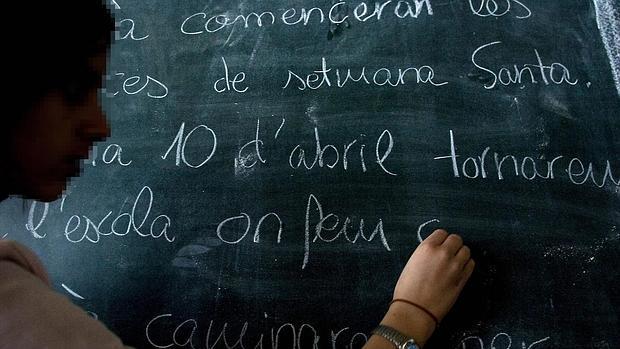 a començeran les
ces de setmana Santa.
a 10 d'abril tornareu
l'escola on feu c
caminara per